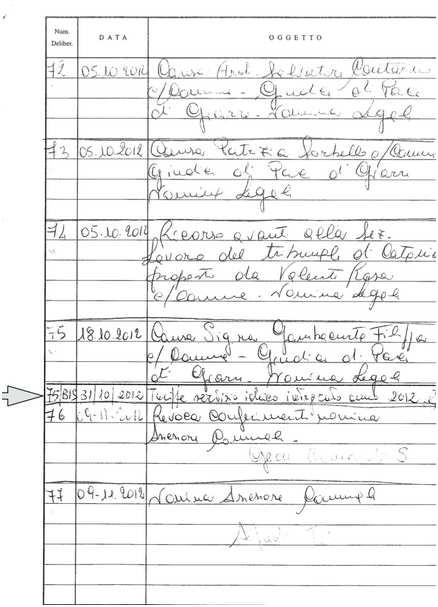 Num. Deliber. DATA OGGETTO
72 05.10.2012 Causa Arch. Salvatore
c/Comune - Giudice di Pace
di Giarre - Nomina Legale
73 05.10.2012 Causa Patrizia Sorbello c/Comune
Giudice di Pace di Giarre
Nomina Legale
74 05.10.2012 Ricorso avanti alla Sez.
Lavoro del tribunale di Catania
proposto da Valenti Rosa
c/Comune - Nomina Legale
75 18.10.2012 Causa Sig.ra Filippa
c/Comune - Giudice di Pace
di Giarre - Nomina Legale
75/BIS 31/10/2012 Tariffe servizio idrico integrato anno 2012
76 09-11-2012 Revoca conferimenti nomina
Assessore Comunale.
77 09-11-2012 Nomina Assessore Comunale